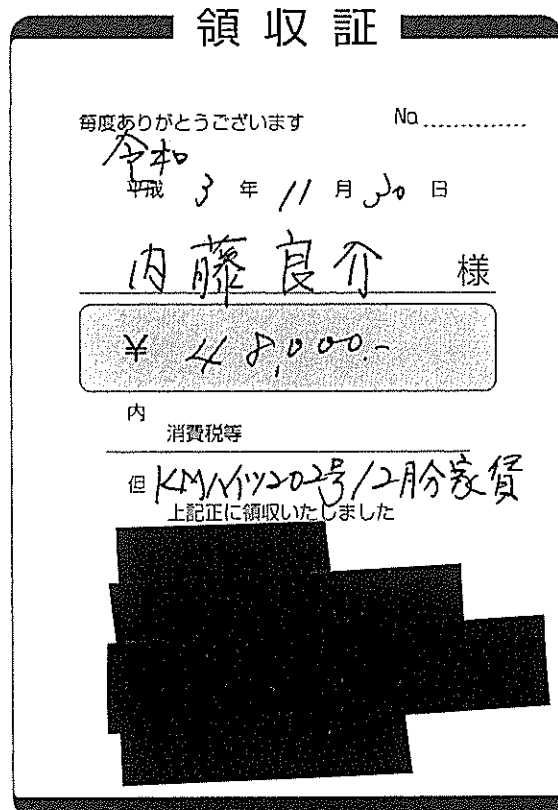 領収証
毎度ありがとうございます No.............
令和
平成 3 年 11 月 30 日
内藤良介 様
¥ 48,000.-
内
消費税等
但 KMハイツ202号12月分家賃
上記正に領収いたしました